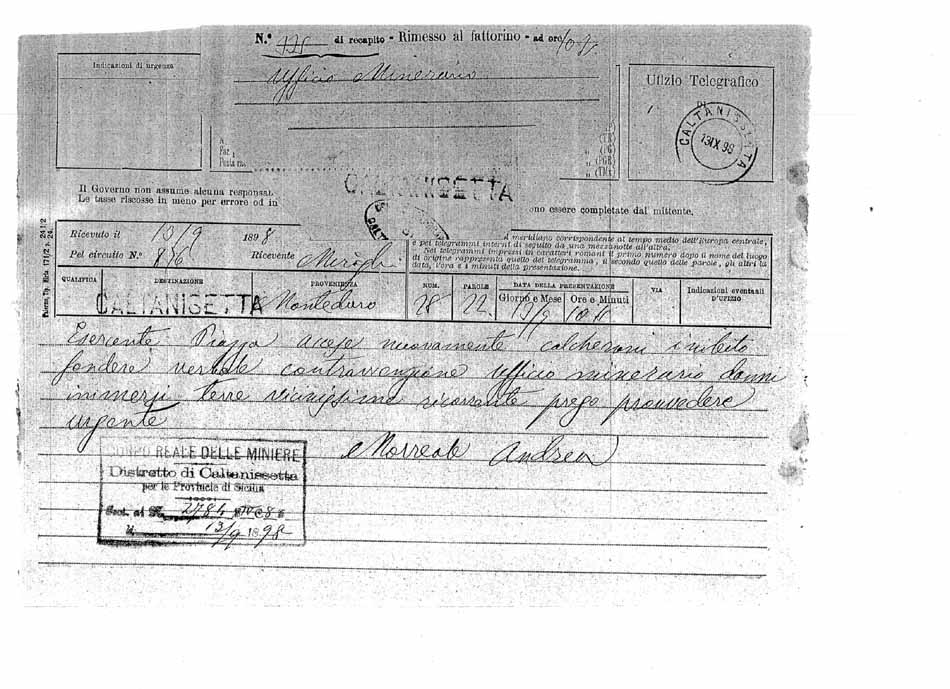 N.º 175 di recapito - Rimesso al fattorino - ad ore
Indicazioni di urgenza
Ufficio Minerario
Ufizio Telegrafico
DI
CALTANISSETTA
13 IX 98
(TR)
(PG)
(PGR)
Il Governo non assume alcuna responsa.
Le tasse riscosse in meno per errore od in
CALTANISETTA
ono essere completate dal mittente.
Ricevuto il 13/9 1898
Pel circuito N.º 816 Ricevente
meridiano corrispondente al tempo medio dell'Europa centrale,
e pei telegrammi interni di seguito da una mezzanotte all'altra.
Nei telegrammi impressi in caratteri romani il primo numero dopo il nome del luogo
di origine rappresenta quello del telegramma, il secondo quello delle parole, gli altri la
data, l'ora e i minuti della presentazione.
QUALIFICA DESTINAZIONE PROVENIENZA NUM. PAROLE DATA DELLA PRESENTAZIONE VIA Indicazioni eventuali d'ufizio
Giorno e Mese Ore e Minuti
CALTANISETTA Montedoro 28 22 13/9
Esercente Piazza accese nuovamente calcheroni inibito
fondere verbale contravvenzione ufficio minerario danni
immensi terre vicinissime ricorrante prego provvedere
urgente
Morreale Andrea
CORPO REALE DELLE MINIERE
Distretto di Caltanissetta
per le Provincie di Sicilia
2784
13/9 1898